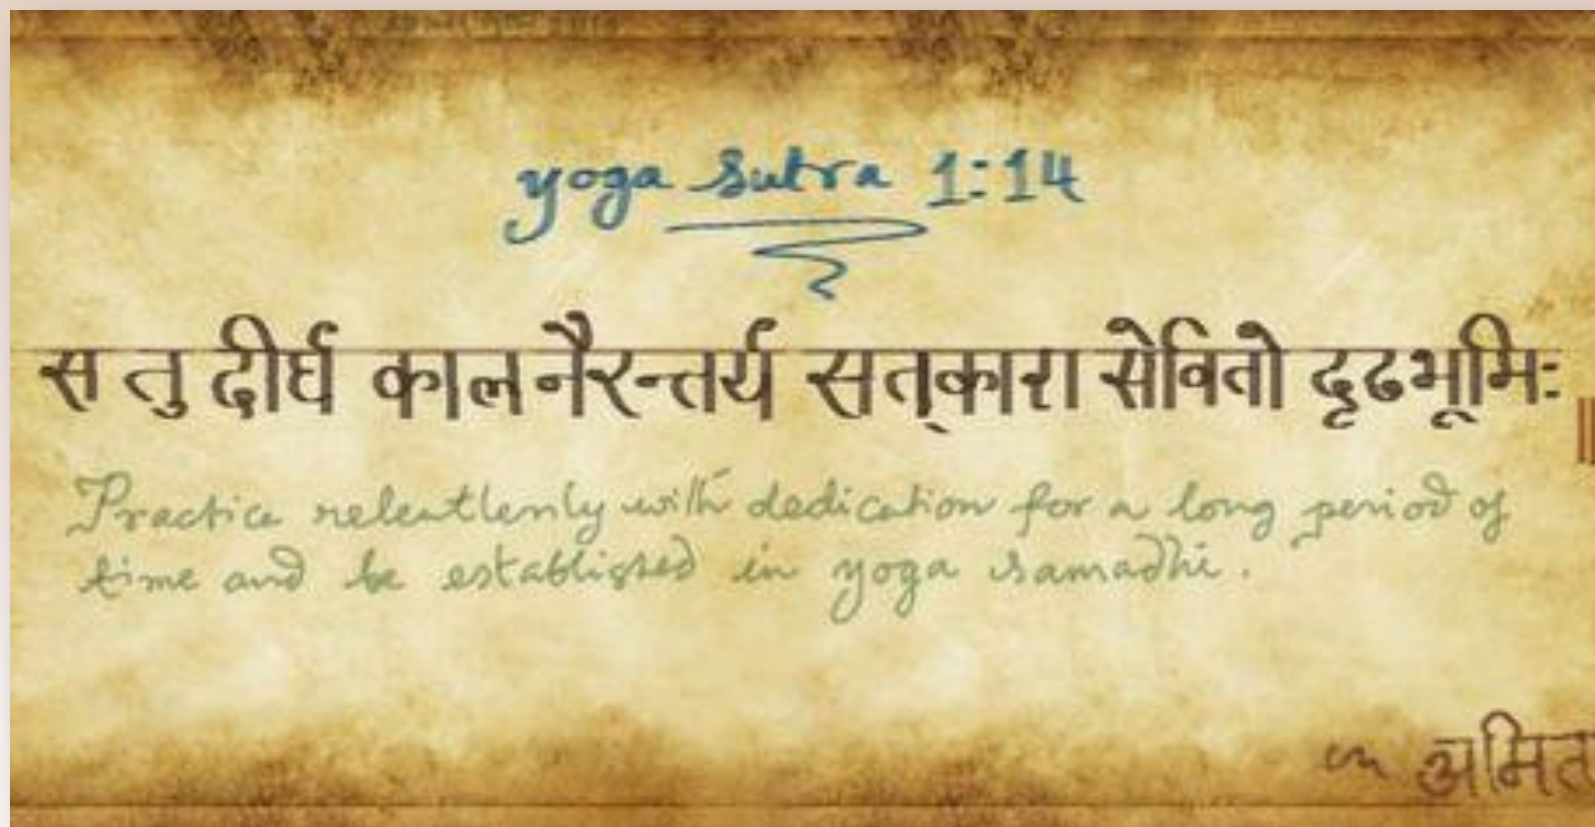 yoga sutra 1:14
स तु दीर्घ काल नैरन्तर्य सत्कारा सेवितो दृढभूमिः ॥
Practice relentlenly with dedication for a long period of
time and be established in yoga samadhi.
~ अमित